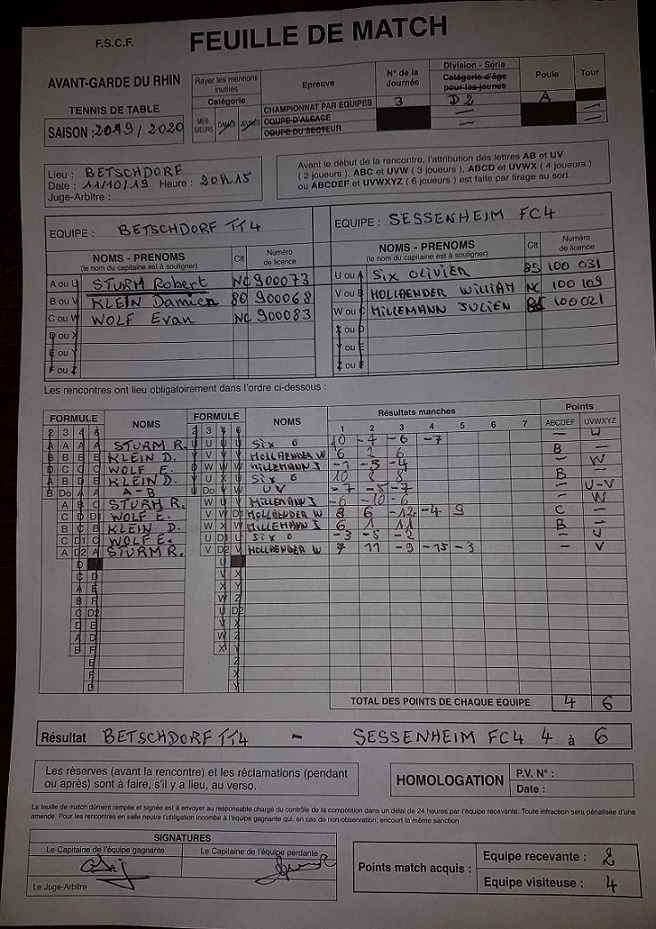 F.S.C.F.
FEUILLE DE MATCH
AVANT-GARDE DU RHIN
TENNIS DE TABLE
SAISON : 2019 / 2020
Rayer les mentions inutiles
Catégorie
MESSIEURS DAMES JEUNES
Epreuve
CHAMPIONNAT PAR EQUIPES
COUPE D'ALSACE
COUPE DU SECTEUR
N° de la Journée
3
Division - Série
Catégorie d'âge pour les jeunes
D2
Poule
A
Tour
Lieu : BETSCHDORF
Date : 11/10/19 Heure : 20H15
Juge-Arbitre :
Avant le début de la rencontre, l'attribution des lettres AB et UV
( 2 joueurs ), ABC et UVW ( 3 joueurs ), ABCD et UVWX ( 4 joueurs )
ou ABCDEF et UVWXYZ ( 6 joueurs ) est faite par tirage au sort.
EQUIPE : BETSCHDORF TT4
NOMS - PRENOMS
(le nom du capitaine est à souligner)
Clt
Numéro de licence
A ou U STURM Robert NC 900073
B ou V KLEIN Damien 80 900068
C ou W WOLF Evan NC 900083
D ou X
E ou Y
F ou Z
EQUIPE : SESSENHEIM FC4
NOMS - PRENOMS
(le nom du capitaine est à souligner)
Clt
Numéro de licence
U ou A SIX OLIVIER 85 100 031
V ou B HOLLAENDER WILLIAM NC 100 109
W ou C MILLEMANN JULIEN 100021
X ou D
Y ou E
Z ou F
Les rencontres ont lieu obligatoirement dans l'ordre ci-dessous :
FORMULE NOMS FORMULE NOMS Résultats manches Points
1 2 3 4 5 6 7 ABCDEF UVWXYZ
STURM R. SIX O 10 -4 -6 -7 - U
KLEIN D. HOLLAENDER W 6 2 6 B -
WOLF E. MILLEMANN J -1 -5 -4 - W
KLEIN D. SIX O 10 8 8 B -
A - B U V -7 -5 -7 - U-V
STURM R. MILLEMANN J -6 -10 -6 - W
WOLF E. HOLLAENDER W 8 6 -12 -4 9 C -
KLEIN D. MILLEMANN J 6 1 11 B -
WOLF E. SIX O -3 -5 -2 - U
STURM R. HOLLAENDER W 7 11 -9 -15 -3 - V
TOTAL DES POINTS DE CHAQUE EQUIPE 4 6
Résultat BETSCHDORF TT4 - SESSENHEIM FC4 4 à 6
Les réserves (avant la rencontre) et les réclamations (pendant
ou après) sont à faire, s'il y a lieu, au verso.
HOMOLOGATION
P.V. N° :
Date :
La feuille de match dûment remplie et signée est à envoyer au responsable chargé du contrôle de la compétition dans un délai de 24 heures par l'équipe recevante. Toute infraction sera pénalisée d'une
amende. Pour les rencontres en salle neutre l'obligation incombe à l'équipe gagnante qui, en cas de non-observation, encourt la même sanction
SIGNATURES
Le Capitaine de l'équipe gagnante
Le Capitaine de l'équipe perdante
Le Juge-Arbitre
Points match acquis :
Equipe recevante : 2
Equipe visiteuse : 4